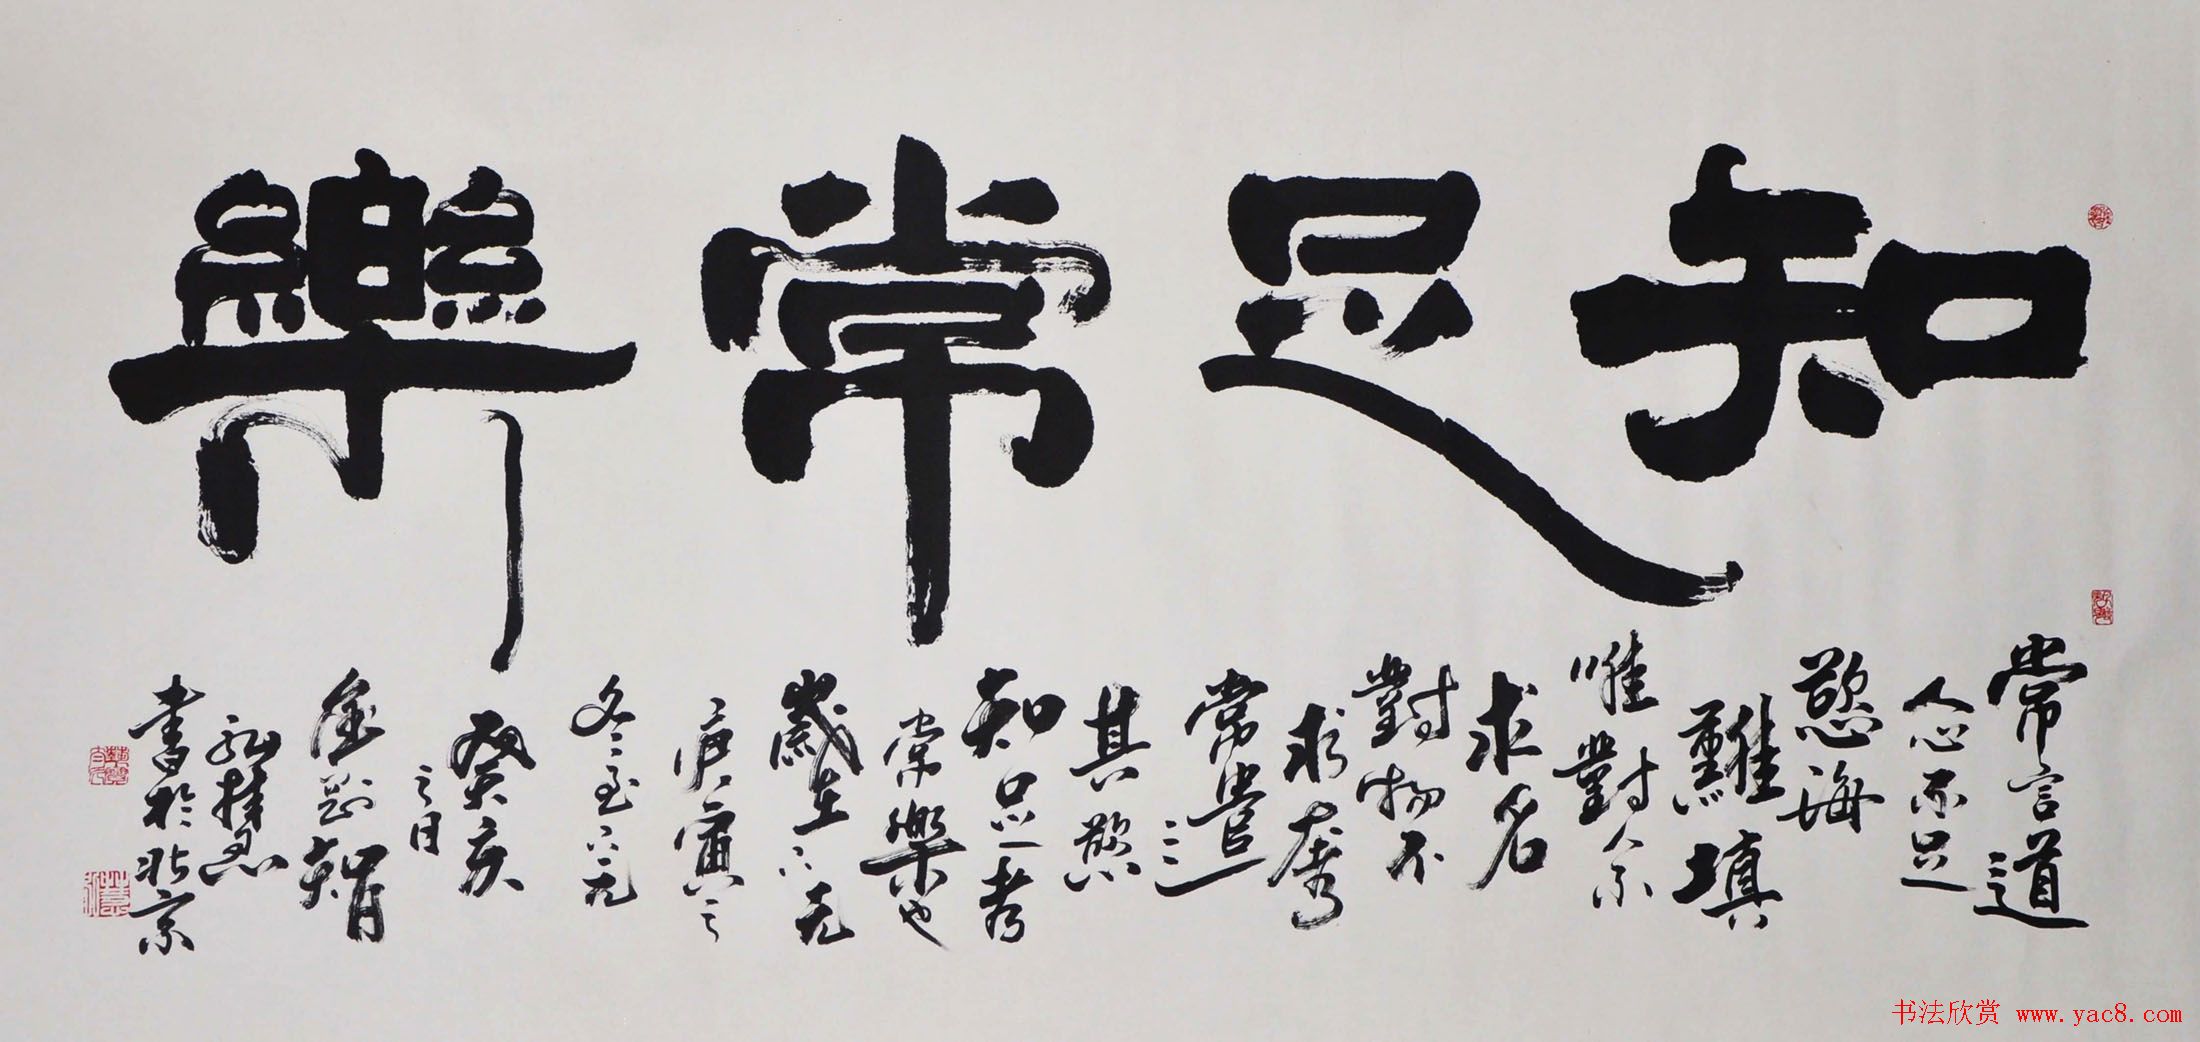 知足常樂
常言道
人心不足
慾海
難填
唯對
求名
對物不
求奢
常遣
其慾
知足者
常樂也
歲在
庚寅之
冬至
癸亥
之日
金剛智
書於北京
书法欣赏 www.yac8.com